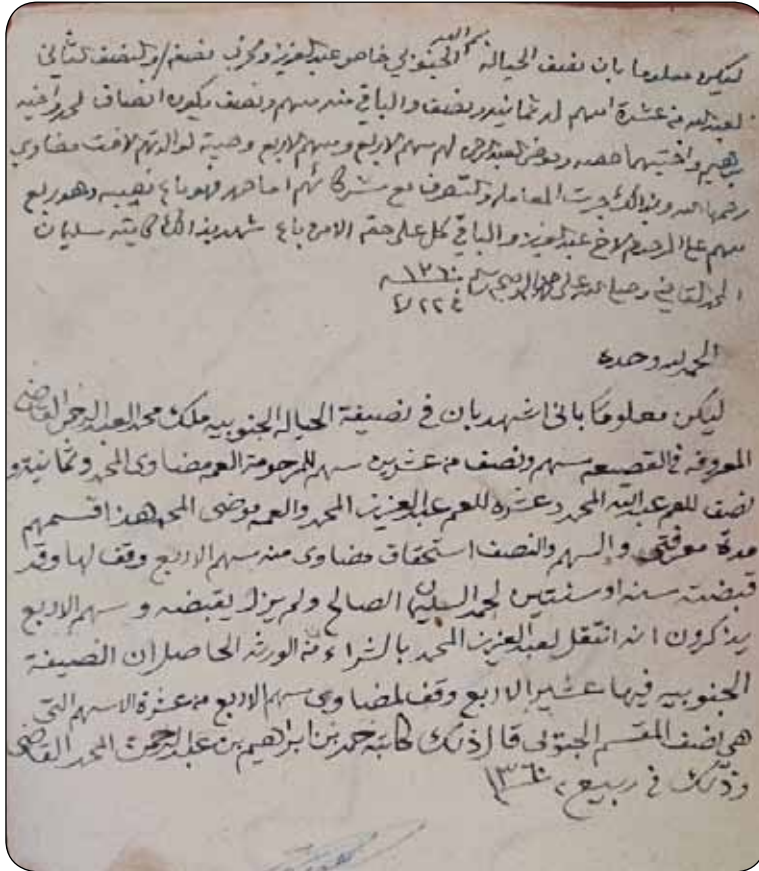 ليكن معلوما بان نصف الحيالة الجنوبي خاص عبدالعزيز نصفه والنصف الثاني
لعبدالله من عشرة اسهم له ثمانية ونصف والباقي منه سهم ونصف يكون انصاف لحمد واخيه
براهيم واختيهما حصه وموضي العبدالرحمن لهم سهم الاربع وسهم الاربع وصية لوالدتهم الاخت مضاوي
رحمها الله وبذالك جرت المعاملة والتصرف مع شركائهم اما حمد فهو باع نصيبه وهو ربع
سهم على المرحوم الاخ عبدالعزيز والباقي كل على حقه الا من باع شهد بذالك كاتبه سليمان
المحمد القاضي وصلى الله على محمد وسلم ١٣٦٠
في ٢٢
الحمد لله وحده
ليكن معلوما باني اشهد بان في نصيفة الحيالة الجنوبيه ملك محمد العبدالرحمن القاضي
المعروفه في القصيعه سهم ونصف من عشرين سهم للمرحومة العمه مضاوي المحمد وثمانية و
نصف للعم عبدالله المحمد وعشرة للعم عبدالعزيز المحمد والعمه موضي المحمد هذا قسمهم
مدة معرفتي والسهم والنصف استحقاق مضاوي منه سهم الاربع وقف لها وقد
قبضته سنه او سنتين لحمد السليمان الصالح ولم يزل يقبضه وسهم الاربع
يذكرون انه انتقل لعبدالعزيز المحمد بالشراء من الورثه الحاصل ان النصيفة
الجنوبيه فيها عشير الا ربع وقف لمضاوي سهم الاربع من عشرة الاسهم التي
هي نصف المقسم الجنوبي قال ذلك كاتبه حمد بن ابراهيم بن عبدالرحمن المحمد القاضي
وذلك في ربيع ٢ ١٣٦٠